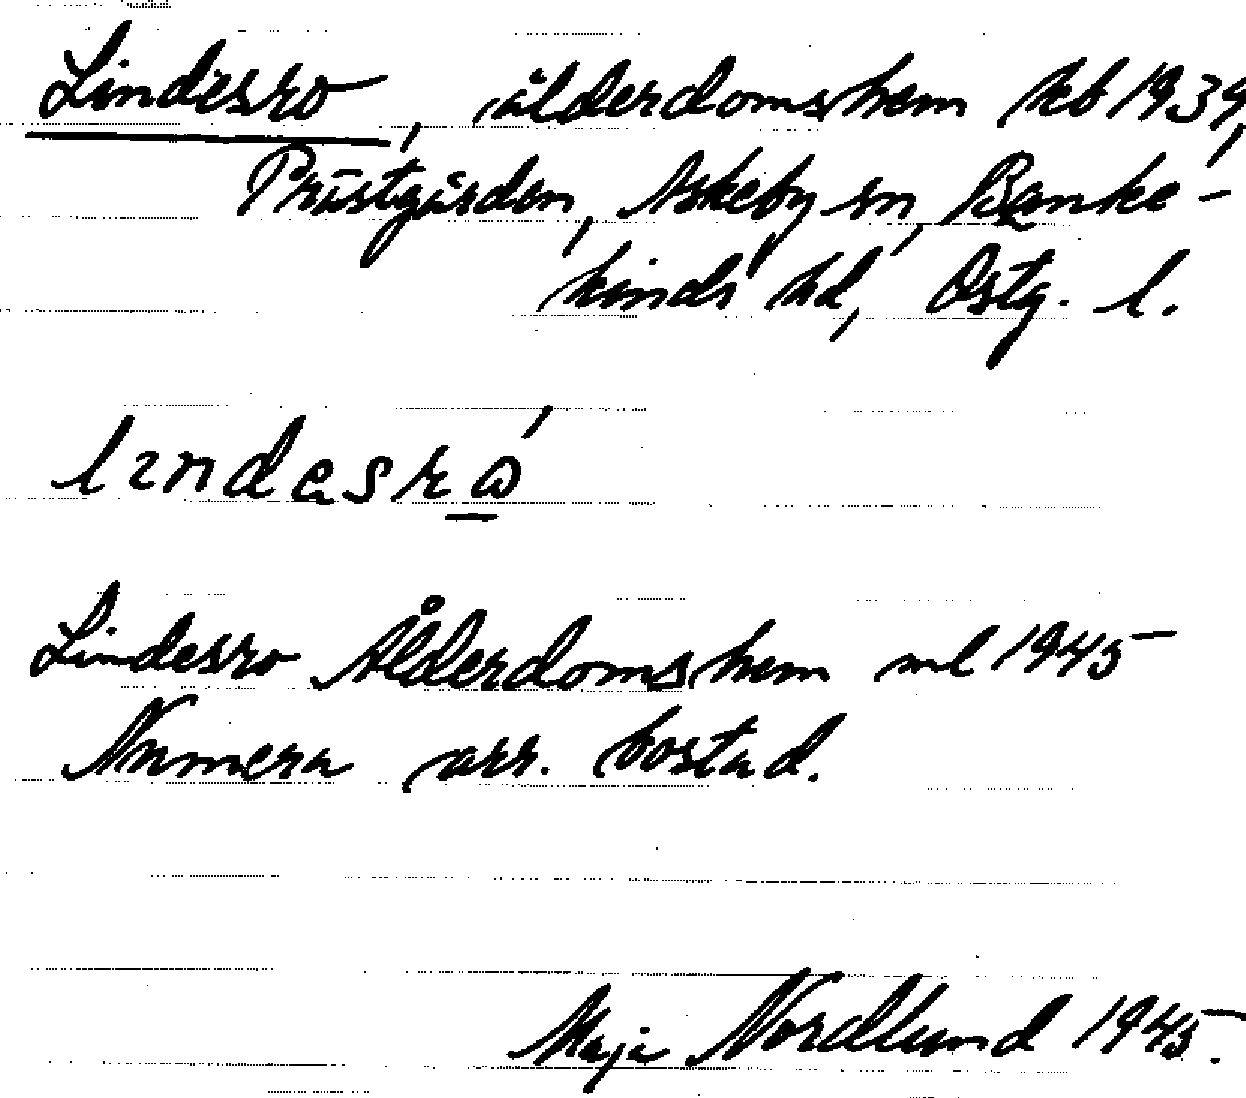 Lindesro, ålderdomshem kb 1939,
Prästgården, Askeby sn, Banke-
kinds hd, Östg. l.
Lindesro Ålderdomshem ml 1945
Numera arr. bostad.
Maja Nordlund 1945.